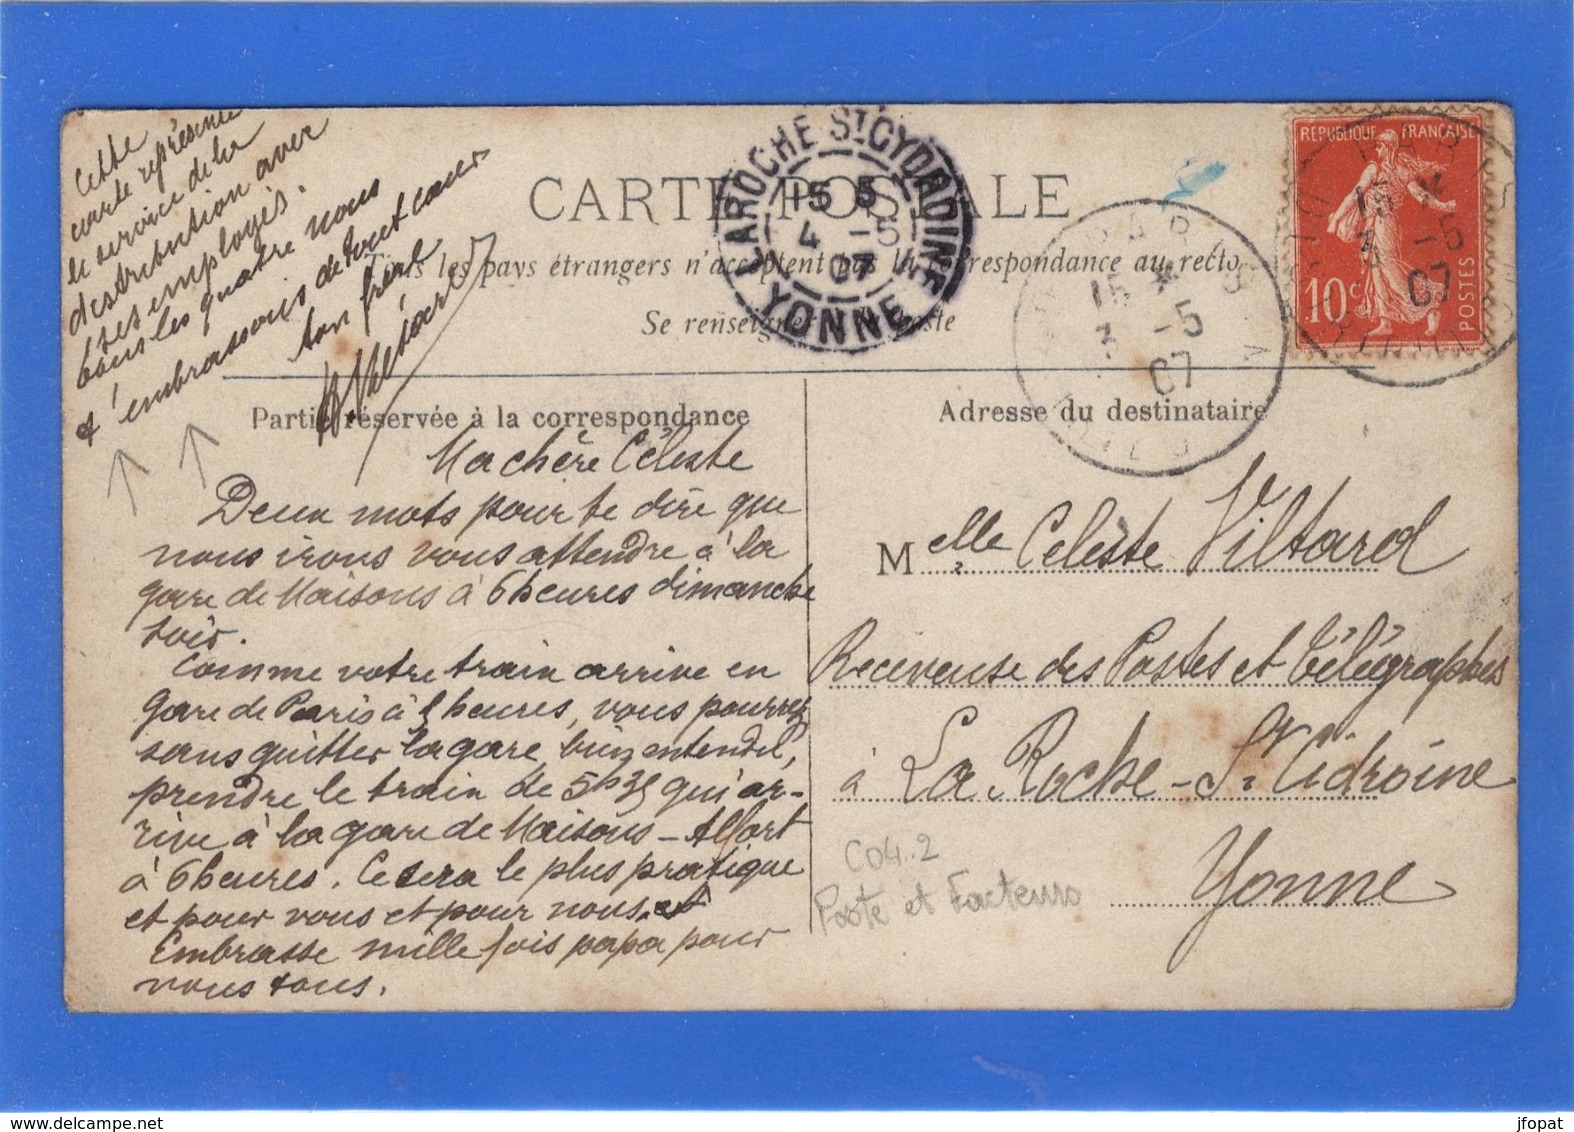 Cette
carte représente
le service de la
distribution avec
ses employés.
tous les quatre nous
t'embrassons de tout cœur
ton frère
Viltard
CARTE POSTALE
Tous les pays étrangers n'acceptent pas la correspondance au recto
Se renseigner à la poste
LAROCHE ST CYDROINE
15 5
4 -5
07
YONNE
PARIS
15
3 -5
07
REPUBLIQUE FRANÇAISE
10c
POSTES
15
3 -5
07
Partie réservée à la correspondance
Adresse du destinataire
Ma chère Céleste
Deux mots pour te dire que
nous irons vous attendre à la
gare de Maisons à 6 heures dimanche
soir.
Comme votre train arrive en
gare de Paris à heures, vous pourrez
sans quitter la gare, bien entendu,
prendre le train de 5h35 qui ar-
rive à la gare de Maisons-Alfort
à 6 heures. Ce sera le plus pratique
et pour vous et pour nous.
Embrasse mille fois papa pour
nous tous.
Melle Celeste Viltard
Receveuse des Postes et Télégraphes
à La Roche-St Cidroine
Yonne
C04..2
Poste et Facteurs
jfopat